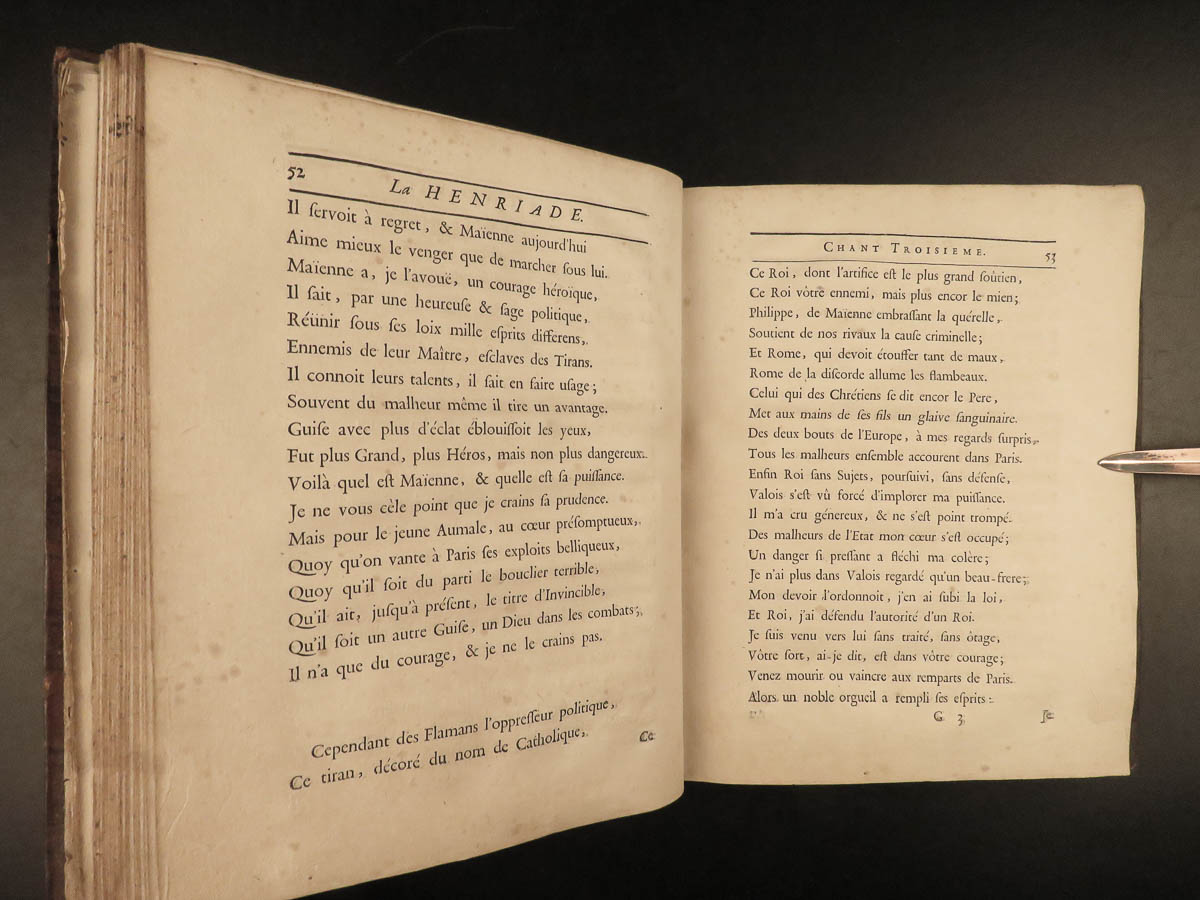 52
La HENRIADE.
Il ſervoit à regret, & Maïenne aujourd'hui
Aime mieux le venger que de marcher ſous lui.
Maïenne a, je l'avouë, un courage héroïque,
Il ſait, par une heureuſe & ſage politique,
Réünir ſous ſes loix mille eſprits differens,
Ennemis de leur Maître, eſclaves des Tirans.
Il connoit leurs talents, il ſait en faire uſage;
Souvent du malheur même il tire un avantage.
Guiſe avec plus d'éclat éblouiſſoit les yeux,
Fut plus Grand, plus Héros, mais non plus dangereux.
Voilà quel eſt Maïenne, & quelle eſt ſa puiſſance.
Je ne vous cèle point que je crains ſa prudence.
Mais pour le jeune Aumale, au cœur préſomptueux,
Quoy qu'on vante à Paris ſes exploits belliqueux,
Quoy qu'il ſoit du parti le bouclier terrible,
Qu'il ait, juſqu'à préſent, le titre d'Invincible,
Qu'il ſoit un autre Guiſe, un Dieu dans les combats;
Il n'a que du courage, & je ne le crains pas.
Cependant des Flamans l'oppreſſeur politique,
Ce tiran, décoré du nom de Catholique,
Ce
CHANT TROISIEME.
53
Ce Roi, dont l'artifice eſt le plus grand ſoûtien,
Ce Roi vôtre ennemi, mais plus encor le mien;
Philippe, de Maïenne embraſſant la quérelle,
Soutient de nos rivaux la cauſe criminelle;
Et Rome, qui devoit étouffer tant de maux,
Rome de la diſcorde allume les flambeaux.
Celui qui des Chrétiens ſe dit encor le Pere,
Met aux mains de ſes fils un glaive ſanguinaire.
Des deux bouts de l'Europe, à mes regards ſurpris,
Tous les malheurs enſemble accourent dans Paris.
Enfin Roi ſans Sujets, pourſuivi, ſans défenſe,
Valois s'eſt vû forcé d'implorer ma puiſſance.
Il m'a cru génereux, & ne s'eſt point trompé.
Des malheurs de l'Etat mon cœur s'eſt occupé;
Un danger ſi preſſant a fléchi ma colère;
Je n'ai plus dans Valois regardé qu'un beau-frere;
Mon devoir l'ordonnoit, j'en ai ſubi la loi,
Et Roi, j'ai défendu l'autorité d'un Roi.
Je ſuis venu vers lui ſans traité, ſans ôtage,
Vôtre ſort, ai-je dit, eſt dans vôtre courage;
Venez mourir ou vaincre aux remparts de Paris.
Alors un noble orgueil a rempli ſes eſprits:
G 3
Je